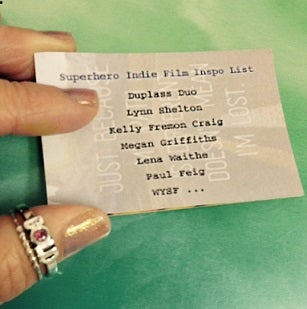 Superhero Indie Film Inspo List
Duplass Duo
Lynn Shelton
Kelly Fremon Craig
Megan Griffiths
Lena Waithe
Paul Feig
WYSF ...
JUST BECAUSE
MEAN
I'M LOST.